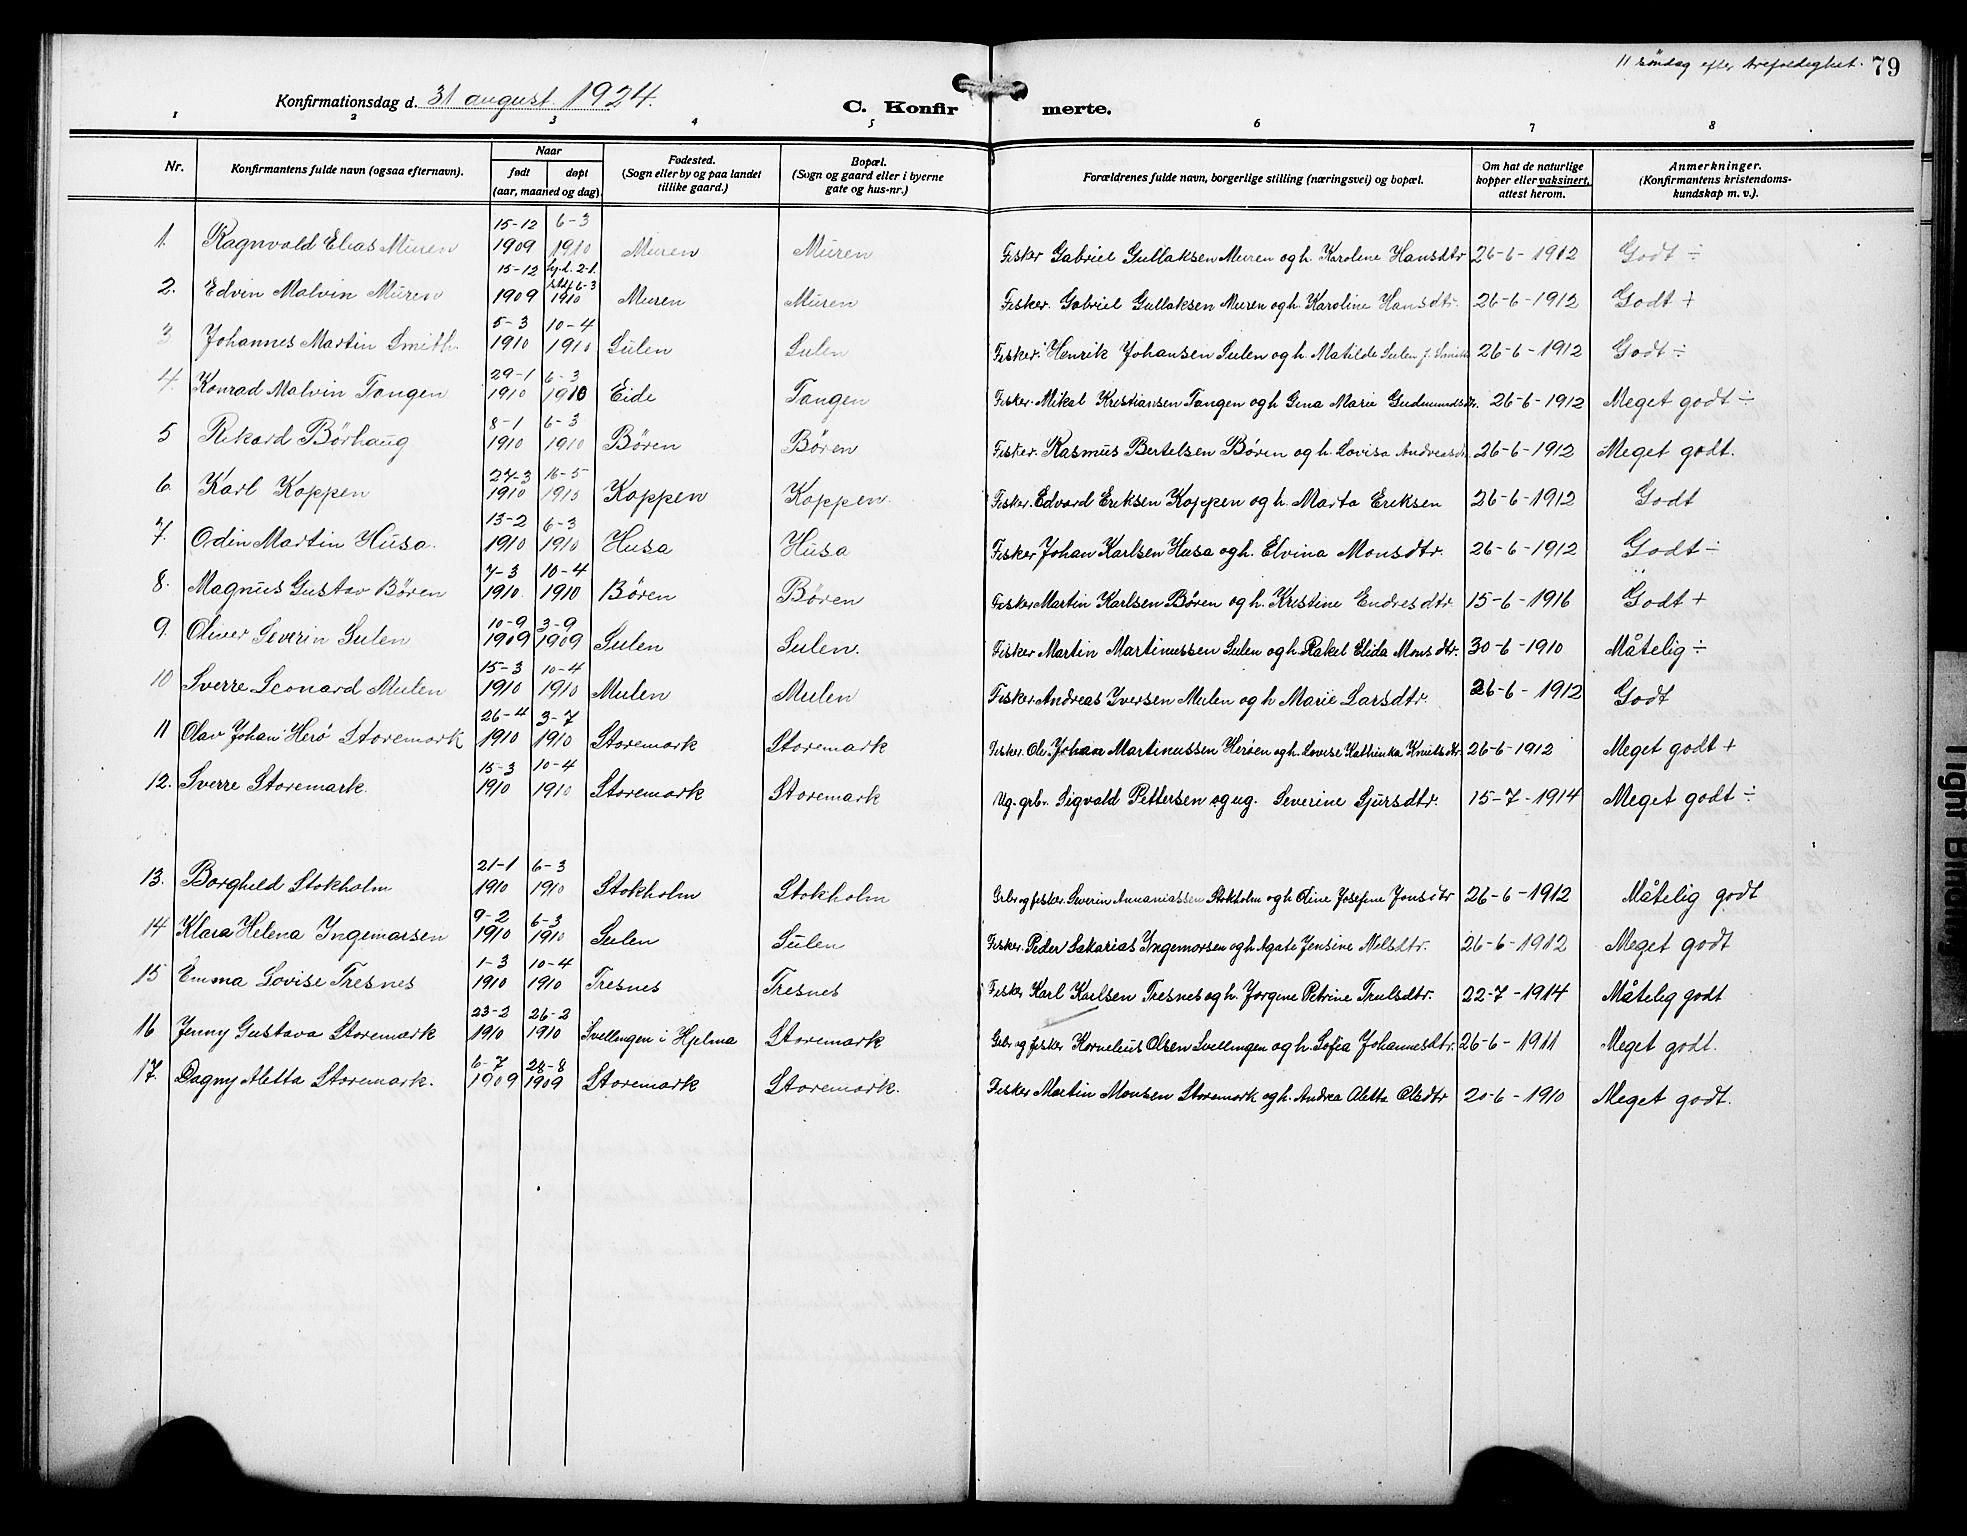 11 søndag efter trefoldighet. 79
Konfirmationsdag d. 31 august 1924. C. Konfirmerte.
1 2 3 4 5 6 7 8
Nr. Konfirmantens fulde navn (ogsaa efternavn). Naar født døpt (aar, maaned og dag) Fødested. (Sogn eller by og paa landet tillike gaard.) Bopæl. (Sogn og gaard eller i byerne gate og hus-nr.) Forældrenes fulde navn, borgerlige stilling (næringsvei) og bopæl. Om hat de naturlige kopper eller vaksinert, attest herom. Anmerkninger. (Konfirmantens kristendoms-kundskap m. v.).
1. Ragnvald Elias Muren 15-12 1909 6-3 1910 Muren Muren Fisker Gabriel Gullaksen Muren og h. Karoline Hansdtr 26-6-1912 Godt ÷
2. Edvin Malvin Muren 15-12 1909 hj.d. 2-1. 6-3 1910 Muren Muren Fisker. Gabriel Gullaksen Muren og h. Karoline Hansdtr. 26-6-1912 Godt +
3. Johannes Martin Smith 5-3 1910 10-4 1910 Sulen Sulen Fisker. Henrik Johansen Sulen og h. Matilde Sulen f. Smith 26-6-1912 Godt ÷
4. Konrad Malvin Tangen 29-1 1910 6-3 1910 Eide Tangen Fisker. Mikal Kristiansen Tangen og h Gina Marie Gudmundsdtr. 26-6-1912 Meget godt ÷
5 Rikard Børhaug 8-1 1910 6-3 1910 Børen Børen Fisker. Rasmus Bertelsen Børen og h. Lovisa Andreasdtr. 26-6-1912 Meget godt.
6. Karl Koppen 27-3 1910 16-5 1910 Koppen Koppen. Fisker. Edvard Eriksen Koppen og h. Marta Eriksen 26-6-1912 Godt
7. Odin Martin Husa. 13-2 1910 6-3 1910 Husa Husa Fisker Johan Karlsen Husa og h. Elvina Monsdtr. 26-6-1912 Godt ÷
8. Magnus Gustav Børen 7-3 1910. 10-4 1910 Børen Børen Fisker Martin Karlsen Børen og h. Kristine Endresdtr. 15-6-1916 Godt +
9. Oliver Severin Sulen 10-9 1909 3-9 1909 Sulen Sulen. Fisker Martin Martinussen Sulen og h. Rakel Elida Monsdtr. 30-6-1910 Måtelig ÷
10 Sverre Leonard Mulen 15-3 1910 10-4 1910 Mulen Mulen Fisker. Andreas Iversen Mulen og h Marie Larsdtr. 26-6-1912 Godt
11 Olav Johan Herø Storemark 26-4 1910 3-7 1910 Storemark Storemark Fisker. Ole Johan Martinussen Herøen og h. Lovise Kathinka Knutsdtr. 26-6-1912 Meget godt +
12. Sverre Storemark. 15-3 1910 10-4 1910 Storemark Storemark Ug. grbr. Sigvald Pettersen og ug. Severine Sjursdtr. 15-7-1914 Meget godt ÷
13. Borghild Stokholm 21-1 1910 6-3 1910 Stokholm Stokholm Grbr og fisker. Severin Annaniassen Stokholm og h Oline Josefine Jonsdtr 26-6-1912 Måtelig godt
14 Klara Helena Ingemarsen 9-2 1910 6-3 1910 Sulen Sulen Fisker. Peder Sakarias Ingemorsen og h Agate Jensine Nilsdtr. 26-6-1912 Meget godt
15 Emma Lovise Tresnes 1-3 1910 10-4 1910 Tresnes Tresnes Fisker Karl Karlsen Tresnes og h. Jørgine Petrine Trulsdtr. 22-7-1914 Måtelig godt
16 Jenny Gustava Storemark 23-2 1910 26-2 1910 Svellingen i Hjelma Storemark Grbr og fisker Kornelius Olsen Svellingen og h. Sofia Johannesdtr. 26-6-1911 Meget godt.
17. Dagny Aletta Storemark. 6-7 1909 28-8 1909 Storemark Storemark. Fisker Martin Monsen Storemark og h. Andrea Aletta Olsdtr 20-6-1910 Meget godt.
Tight Binding